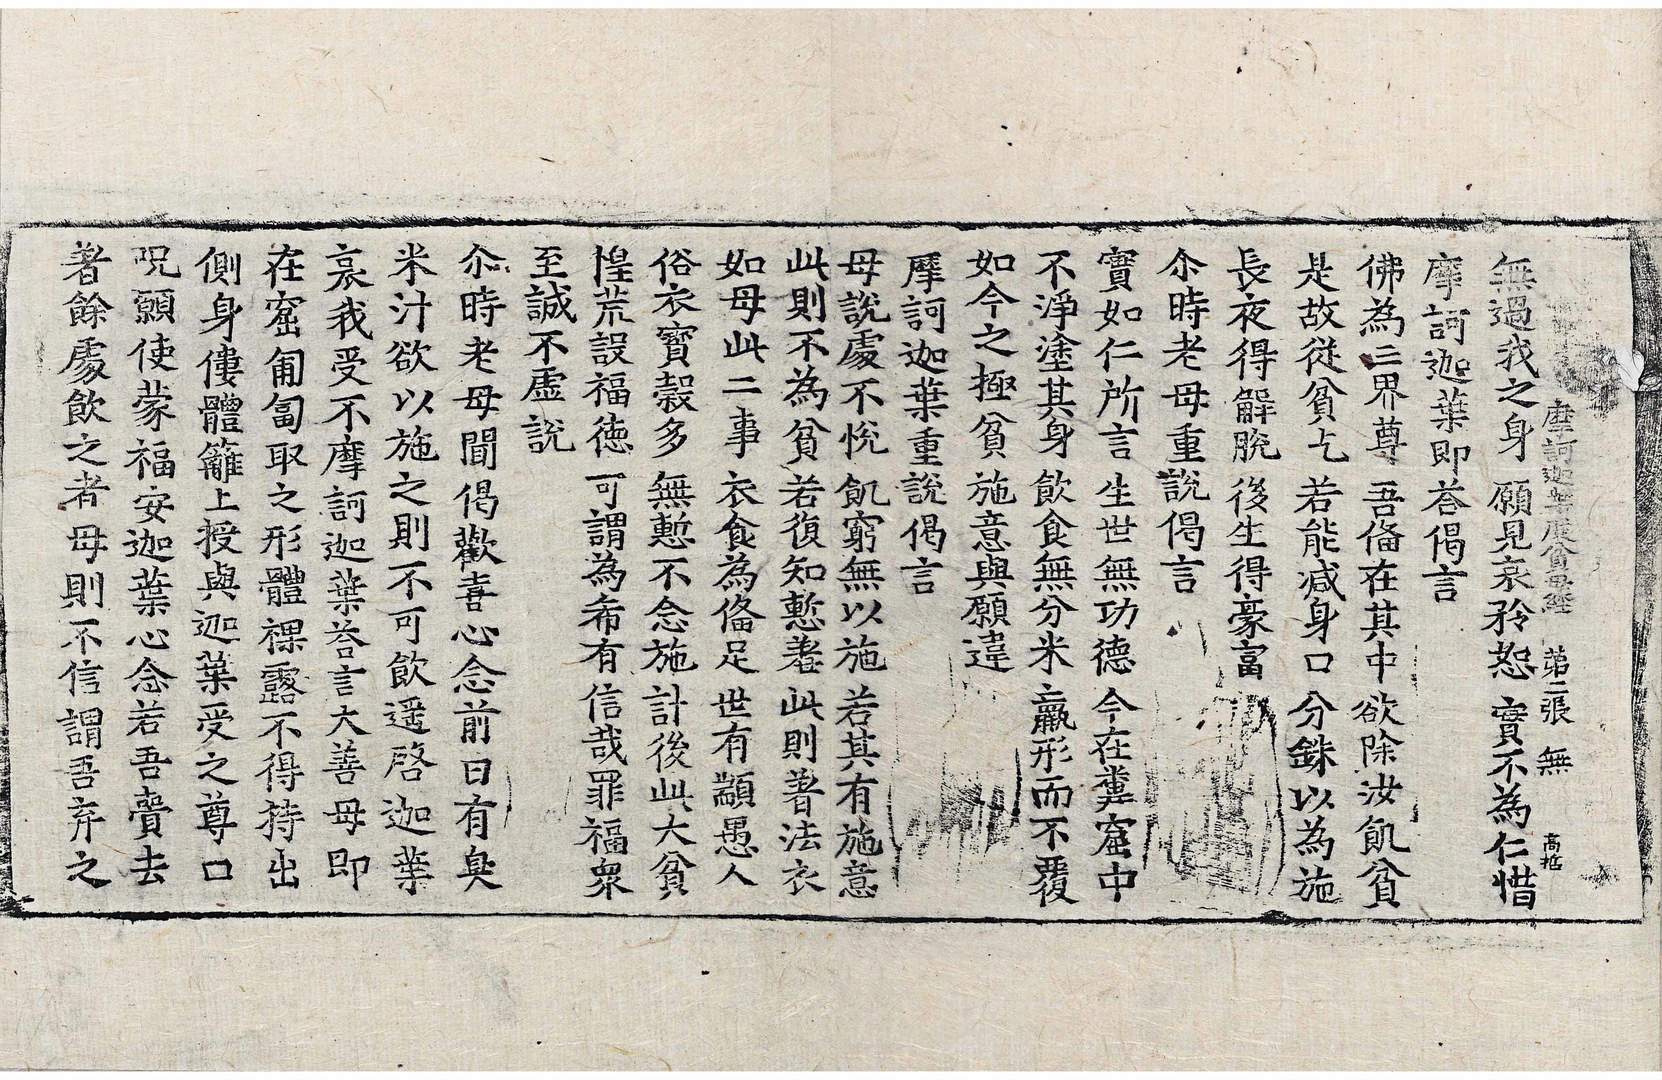 摩訶迦葉度貧母經　第二張　無　高拓
無過我之身　願見哀矜恕　實不為仁惜
摩訶迦葉即荅偈言
佛為三界尊　吾俻在其中　欲除汝飢貧
是故從貧乞　若能減身口　分銖以為施
長夜得解脫　後生得豪富
尒時老母重說偈言
實如仁所言　生世無功德　今在糞窟中
不淨塗其身　飲食無分米　羸形而不覆
如今之極貧　施意與願違
摩訶迦葉重說偈言
母說處不悅　飢窮無以施　若其有施意
此則不為貧　若復知慙羞　此則著法衣
如母此二事　衣食為俻足　世有顓愚人
俗衣寶穀多　無慙不念施　計後此大貧
惶荒設福德　可謂為希有　信哉罪福衆
至誠不虛說
尒時老母聞偈歡喜心念前日有臭
米汁欲以施之則不可飲遥啓迦葉
哀我受不摩訶迦葉荅言大善母即
在窟匍匐取之形體裸露不得持出
側身僂體籬上授與迦葉受之尊口
呪願使蒙福安迦葉心念若吾賷去
著餘處飲之者母則不信謂吾弃之